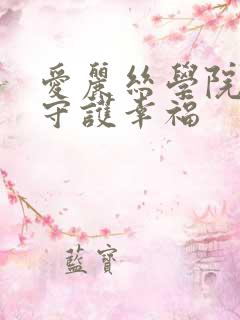 愛麗絲學院
守護幸福
藍寶